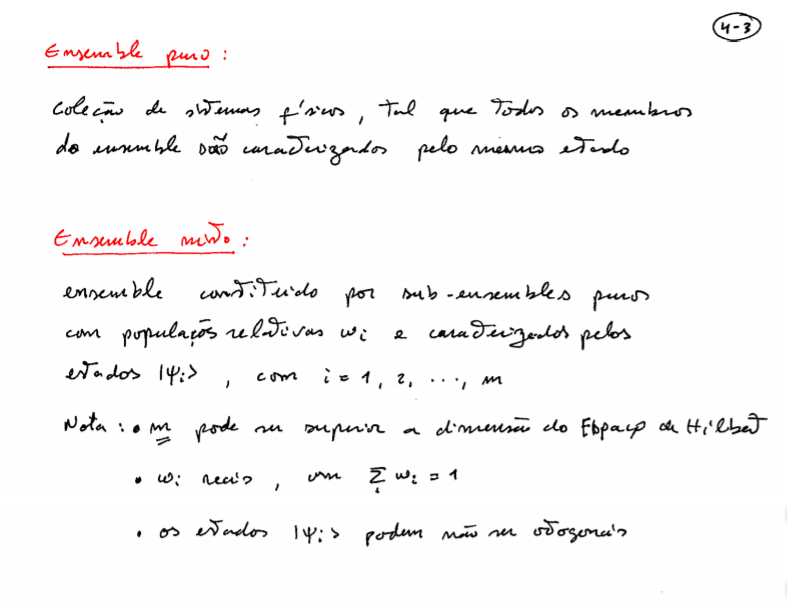 4-3
Ensemble puro :
coleção de sistemas físicos, tal que todos os membros
do ensemble são caracterizados pelo mesmo estado
Ensemble misto :
ensemble constituido por sub-ensembles puros
com populações relativas wi e caracterizados pelos
estados |ψi> , com i = 1, 2, ..., m
Nota : • m pode ser superior a dimensão do Espaço de Hilbert
• wi reais , com Σi wi = 1
• os estados |ψi> podem não ser ortogonais